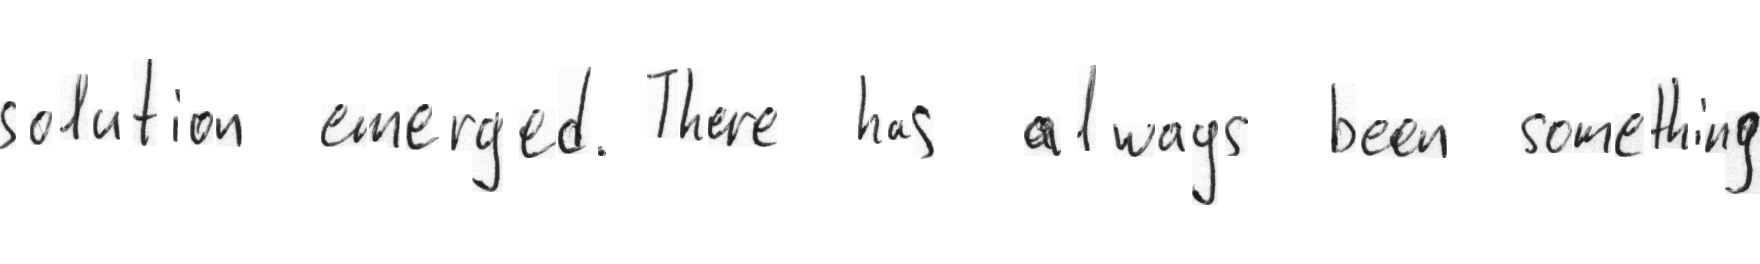 solution emerged. There has always been something